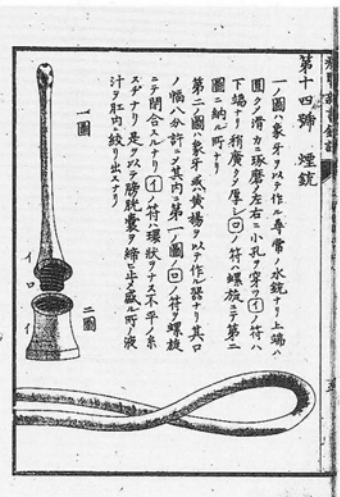 第十四號　煙銃
一ノ圖ハ象牙ヲ以テ作ル尋常ノ水銃ナリ上端ハ
圓クノ滑カニ琢磨ノ左右ニ小孔ヲ穿ツイノ符ハ
下端ナリ稍廣クノ厚シロノ符ハ螺旋ニテ第二
圖ニ納ル所ナリ
第二ノ圖ハ象牙或黄楊ヲ以テ作ル器ナリ其口
ノ幅八分許ニノ其内ニ第一ノ圖ノロノ符ヲ螺旋
ニテ閉合スルナリイノ符ハ環狀ヲナス不平ノ糸
スヂナリ是ヲ以テ膀胱囊ヲ締ヒ止メ盛ル所ノ液
汁ヲ肛内ニ絞リ出スナリ
一圖
イ
ロ
二圖
イ